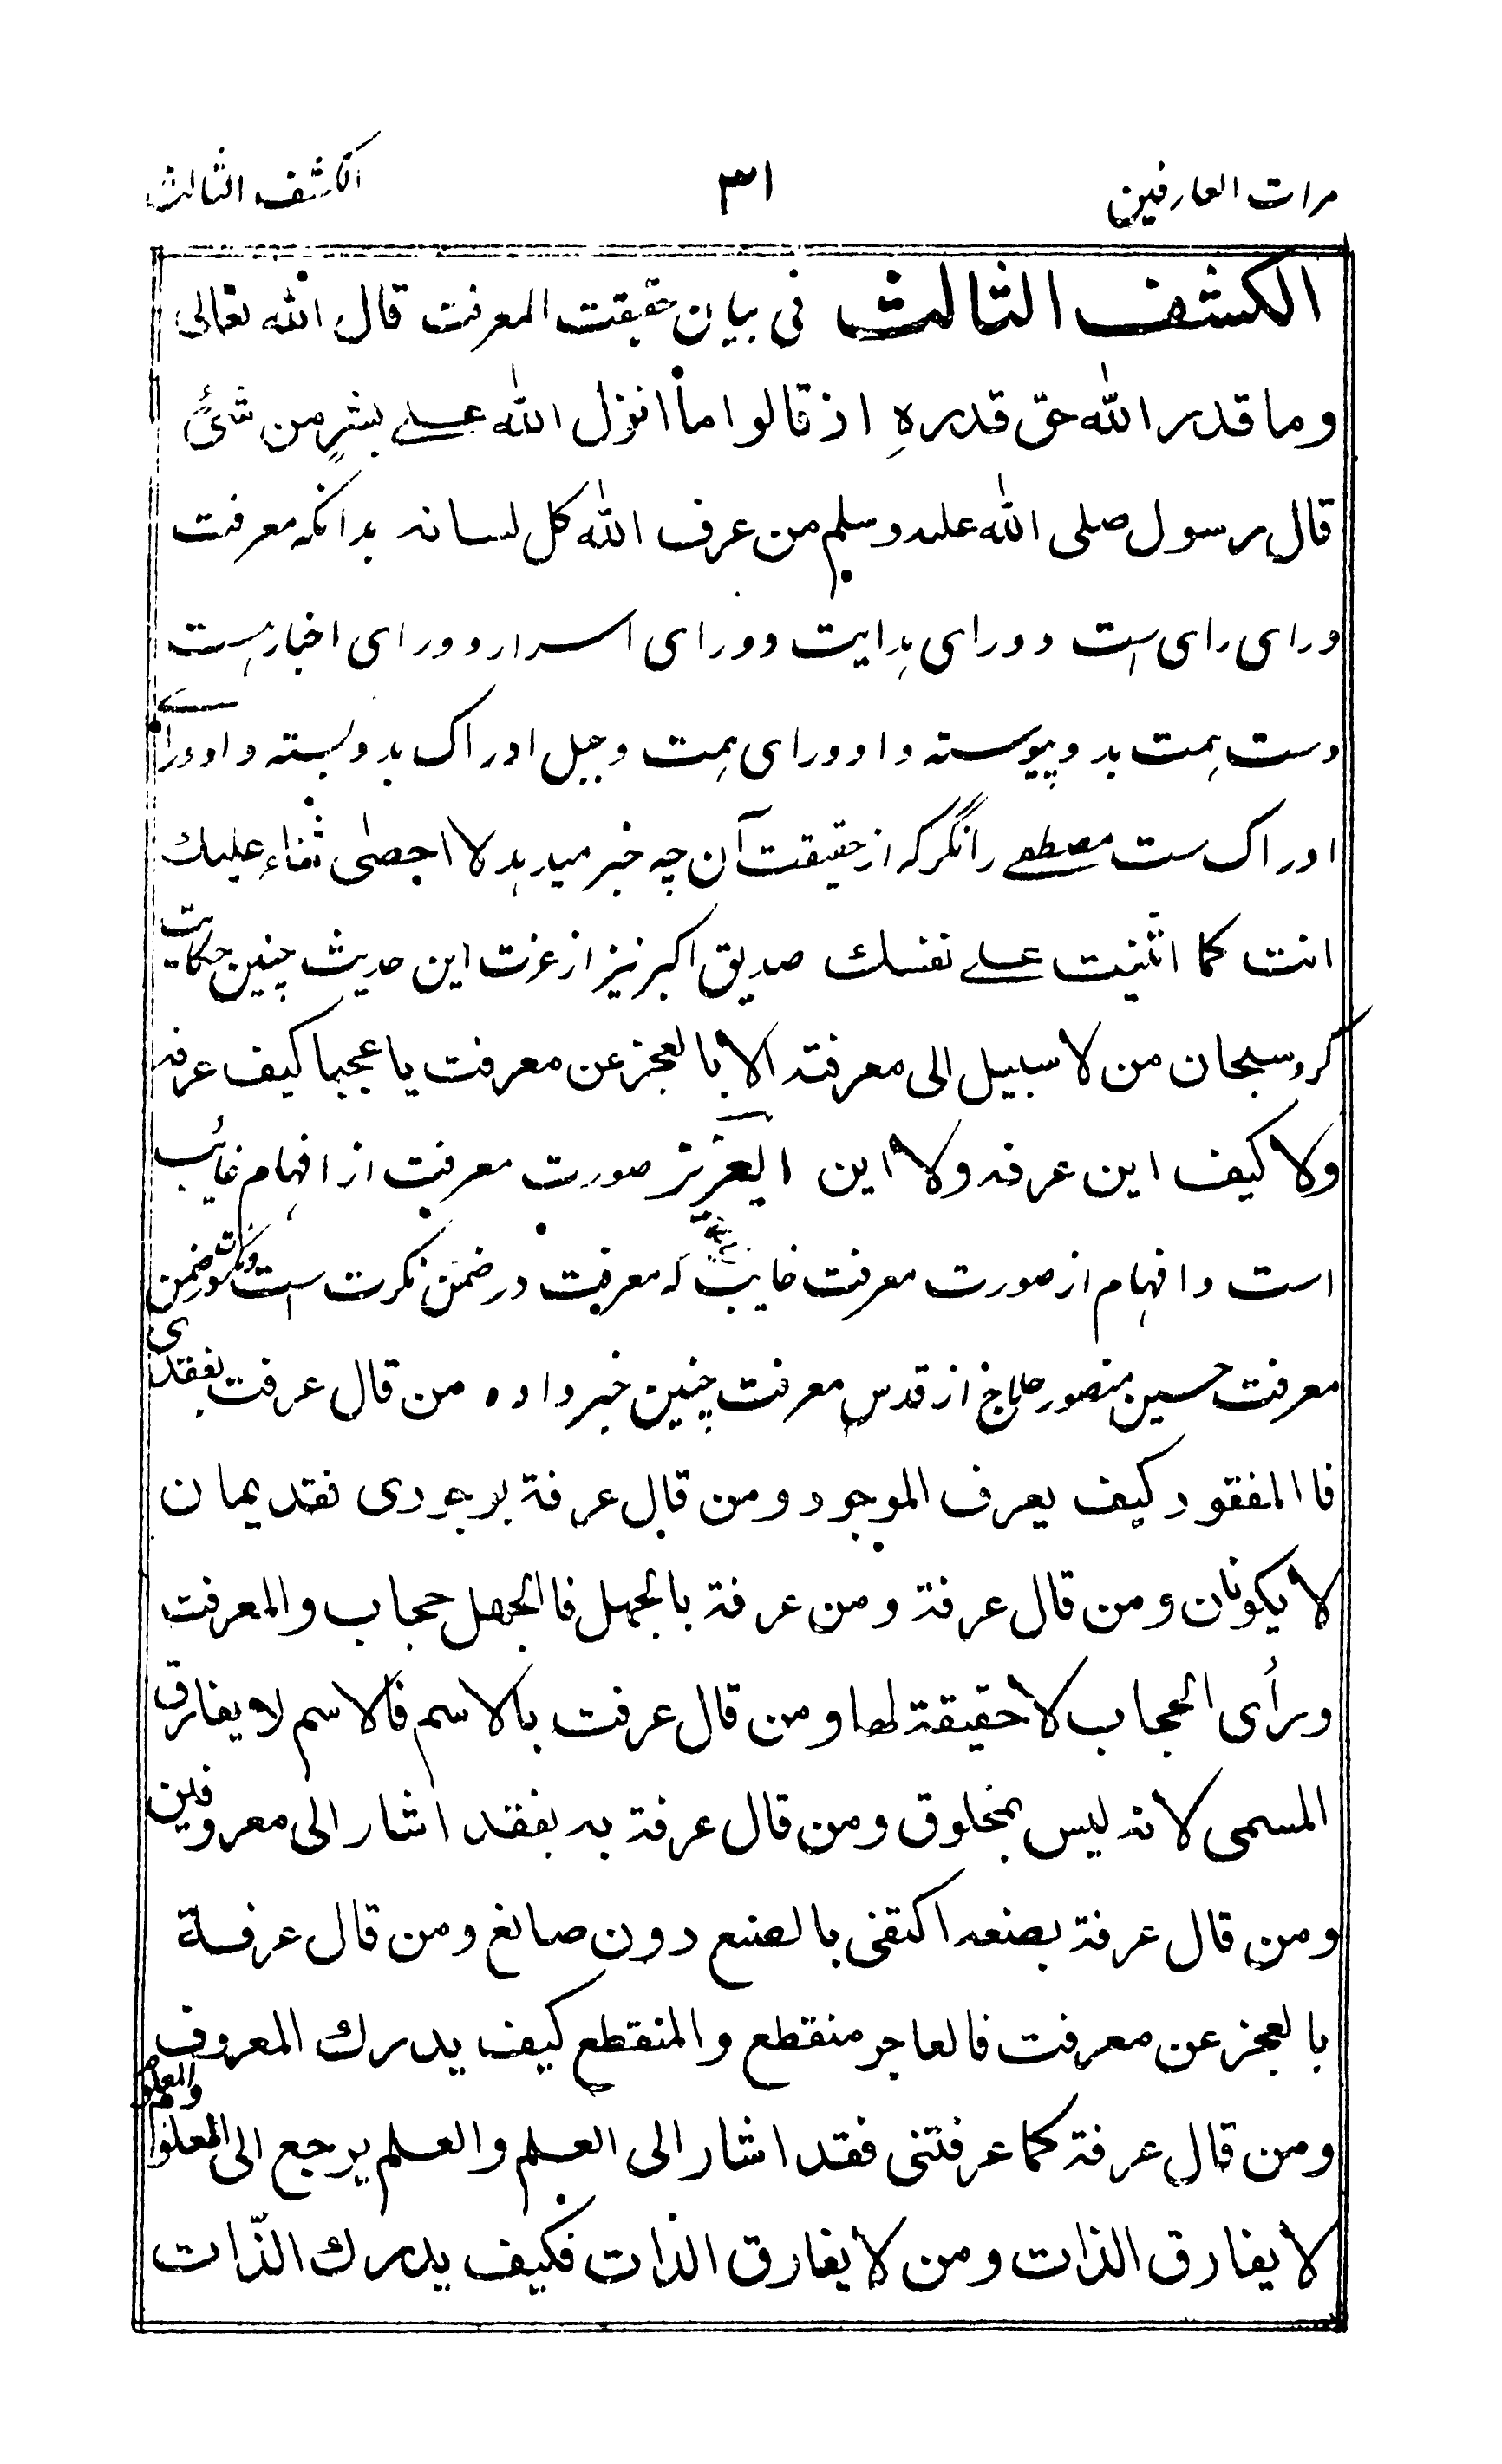 مرات العارفین ۳۱ الکشف الثالث
الکشف الثالث فی بیان حقیقت المعرفت قال الله تعالی
وما قدر الله حق قدرہِ اذ قالوا ما انزل الله علے بشرٍ من شئٍ
قال رسول صلی الله علیه وسلم من عرف الله کل لسانه بدانکه معرفت
ورای رای است و ورای ہدایت و ورای اسرار و ورای اخبار ہست
دست ہمت بدو پیوسته و او ورای ہمت و جبل ادراک بدو بسته و او ورا
ادراک ست مصطفے را نگر که از حقیقت آن چه خبر میدہد لا احصٰی ثناء علیك
انت کما اثنیت علے نفسك صدیق اکبر نیز از عزت این حدیث چنین حکایت
کرد سبحان من لا سبیل الی معرفته الا بالعجز عن معرفت یا عجبا کیف عرفه
ولا کیف این عرفه ولا این ایعزیز صورت معرفت از افهام غائب
است و افهام از صورت معرفت غایب که معرفت در ضمن نکرت است و نکرت در ضمن
معرفت حسین منصور حلاج از قدس معرفت چنین خبر داده من قال عرفت بفقدی
فا المفقود کیف یعرف الموجود ومن قال عرفة بوجودی فقدیمان
لا یکونان ومن قال عرفة ومن عرفة بالجهل فالجهل حجاب والمعرفت
ورأی الحجاب لا حقیقة لها ومن قال عرفت بالاسم فالاسم لا یفارق
المسمی لانه لیس بمخلوق ومن قال عرفة به بفقد اشار الی معروفین
ومن قال عرفة بصنعه اکتفی بالصنع دون صانع ومن قال عرفة
بالعجز عن معرفت فالعاجر منقطع والمنقطع کیف یدرك المعروف
ومن قال عرفة کما عرفتنی فقد اشار الی العلم والعلم یرجع الی المعلوم والمعلوم
لا یفارق الذات ومن لا یفارق الذات فکیف یدرك الذّات